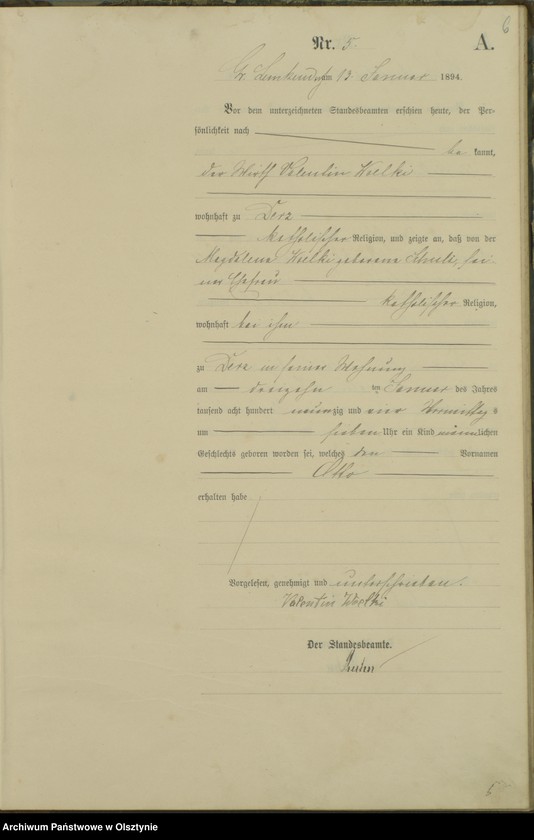 6
Nr. 5. A.
Gr. Lemkendorf am 13. Januar 1894.
Vor dem unterzeichneten Standesbeamten erschien heute, der Per-
sönlichkeit nach
be kannt,
der Wirth Valentin Wielki
wohnhaft zu Derz
katholischer Religion, und zeigte an, daß von der
Magdalena Wielki geborene Schulz, sei-
ner Ehefrau
katholischer Religion,
wohnhaft bei ihm
zu Derz in seiner Wohnung
am dreizehn ten Januar des Jahres
tausend acht hundert neunzig und vier Vormittags
um sieben Uhr ein Kind männlichen
Geschlechts geboren worden sei, welches den Vornamen
Otto
erhalten habe
Vorgelesen, genehmigt und unterschrieben.
Valentin Wielki
Der Standesbeamte.
5
Archiwum Państwowe w Olsztynie